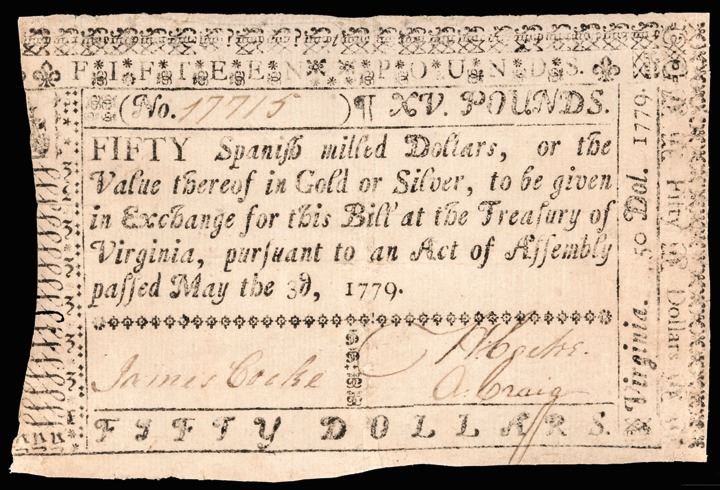 FIFTEEN POUNDS.
(No. 17715 )¶ XV. POUNDS.
FIFTY Spaniſh milled Dollars, or the
Value thereof in Gold or Silver, to be given
in Exchange for this Bill at the Treaſury of
Virginia, purſuant to an Act of Aſſembly
paſſed May the 3d, 1779.
James Cocke
A. Craig
FIFTY DOLLARS.
Virginia. 50 Dol. 1779.
Fifty Dollars